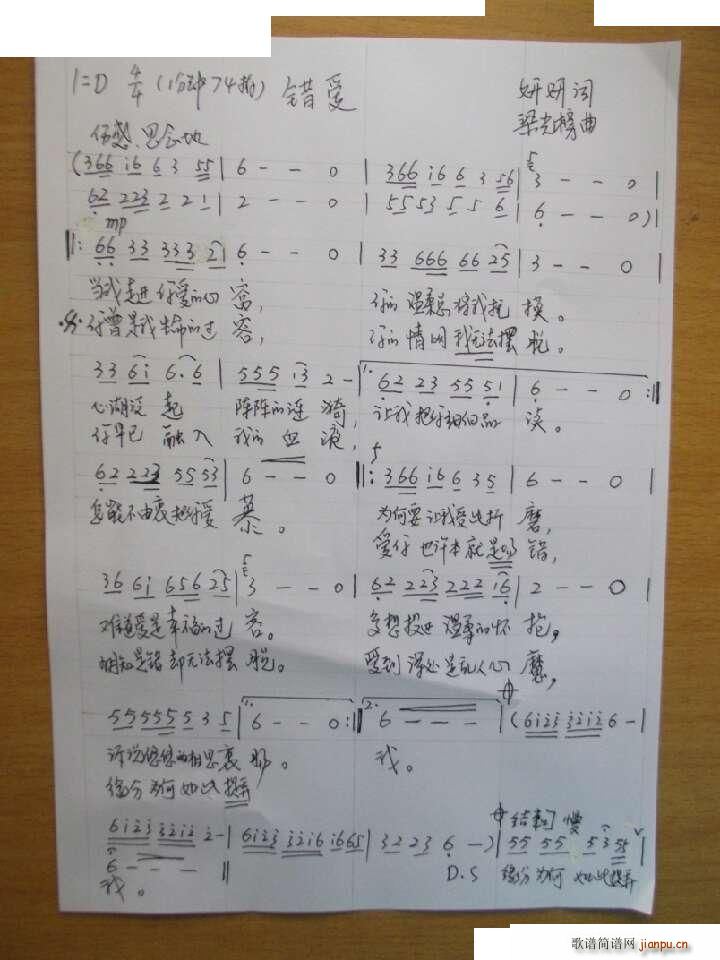 1=D 4/4 (1分钟74拍) 错爱
妍妍词
梁光榜曲
伤感、思念地
(366 i6 6 3 55 | 6 - - 0 | 366 i6 6 3 56 | 3 - - 0 |
62 223 2 2 1 | 2 - - 0 | 55 53 5 5 6 | 6 - - 0)|
mp
‖: 66 33 333 21 | 6 - - 0 | 33 666 66 25 | 3 - - 0 |
当我走进你爱的心窝, 你的温柔总将我抚摸。
你曾是我生命的过客, 你的情网我无法摆脱。
33 6i 6·6 | 555 i3 2 - | 1. 62 23 55 51 | 6 - - 0 :‖
心湖泛起 阵阵的涟漪, 让我把你细细品读。
你早已融入我的血液,
62 223 55 53 | 6 - - 0 ‖: 366 i6 6 35 | 6 - - 0 |
怎能不由衷把你爱慕。 为何要让我受此折磨,
爱你也许本就是个错,
36 6i 656 25 | 3 - - 0 | 62 223 222 i6 | 2 - - 0 |
难道爱是幸福的过客。 多想投进温柔的怀抱,
明知是错却无法摆脱。 爱到深处是乱人心魔,
55555 5 3 5 | 1. 6 - - 0 :‖ 2. 6 - - - | (6i23 32i2 6 - |
诉说悠悠的相思衷肠。 我。
缘分为何如此捉弄
6i23 32i2 2 - | 6i23 32i6 i665 | 3223 6 -) | 结束句 慢 55 55 5 3 55
6 - - - ‖ D.S 缘分为何如此捉弄
我。
歌谱简谱网
jianpu.cn